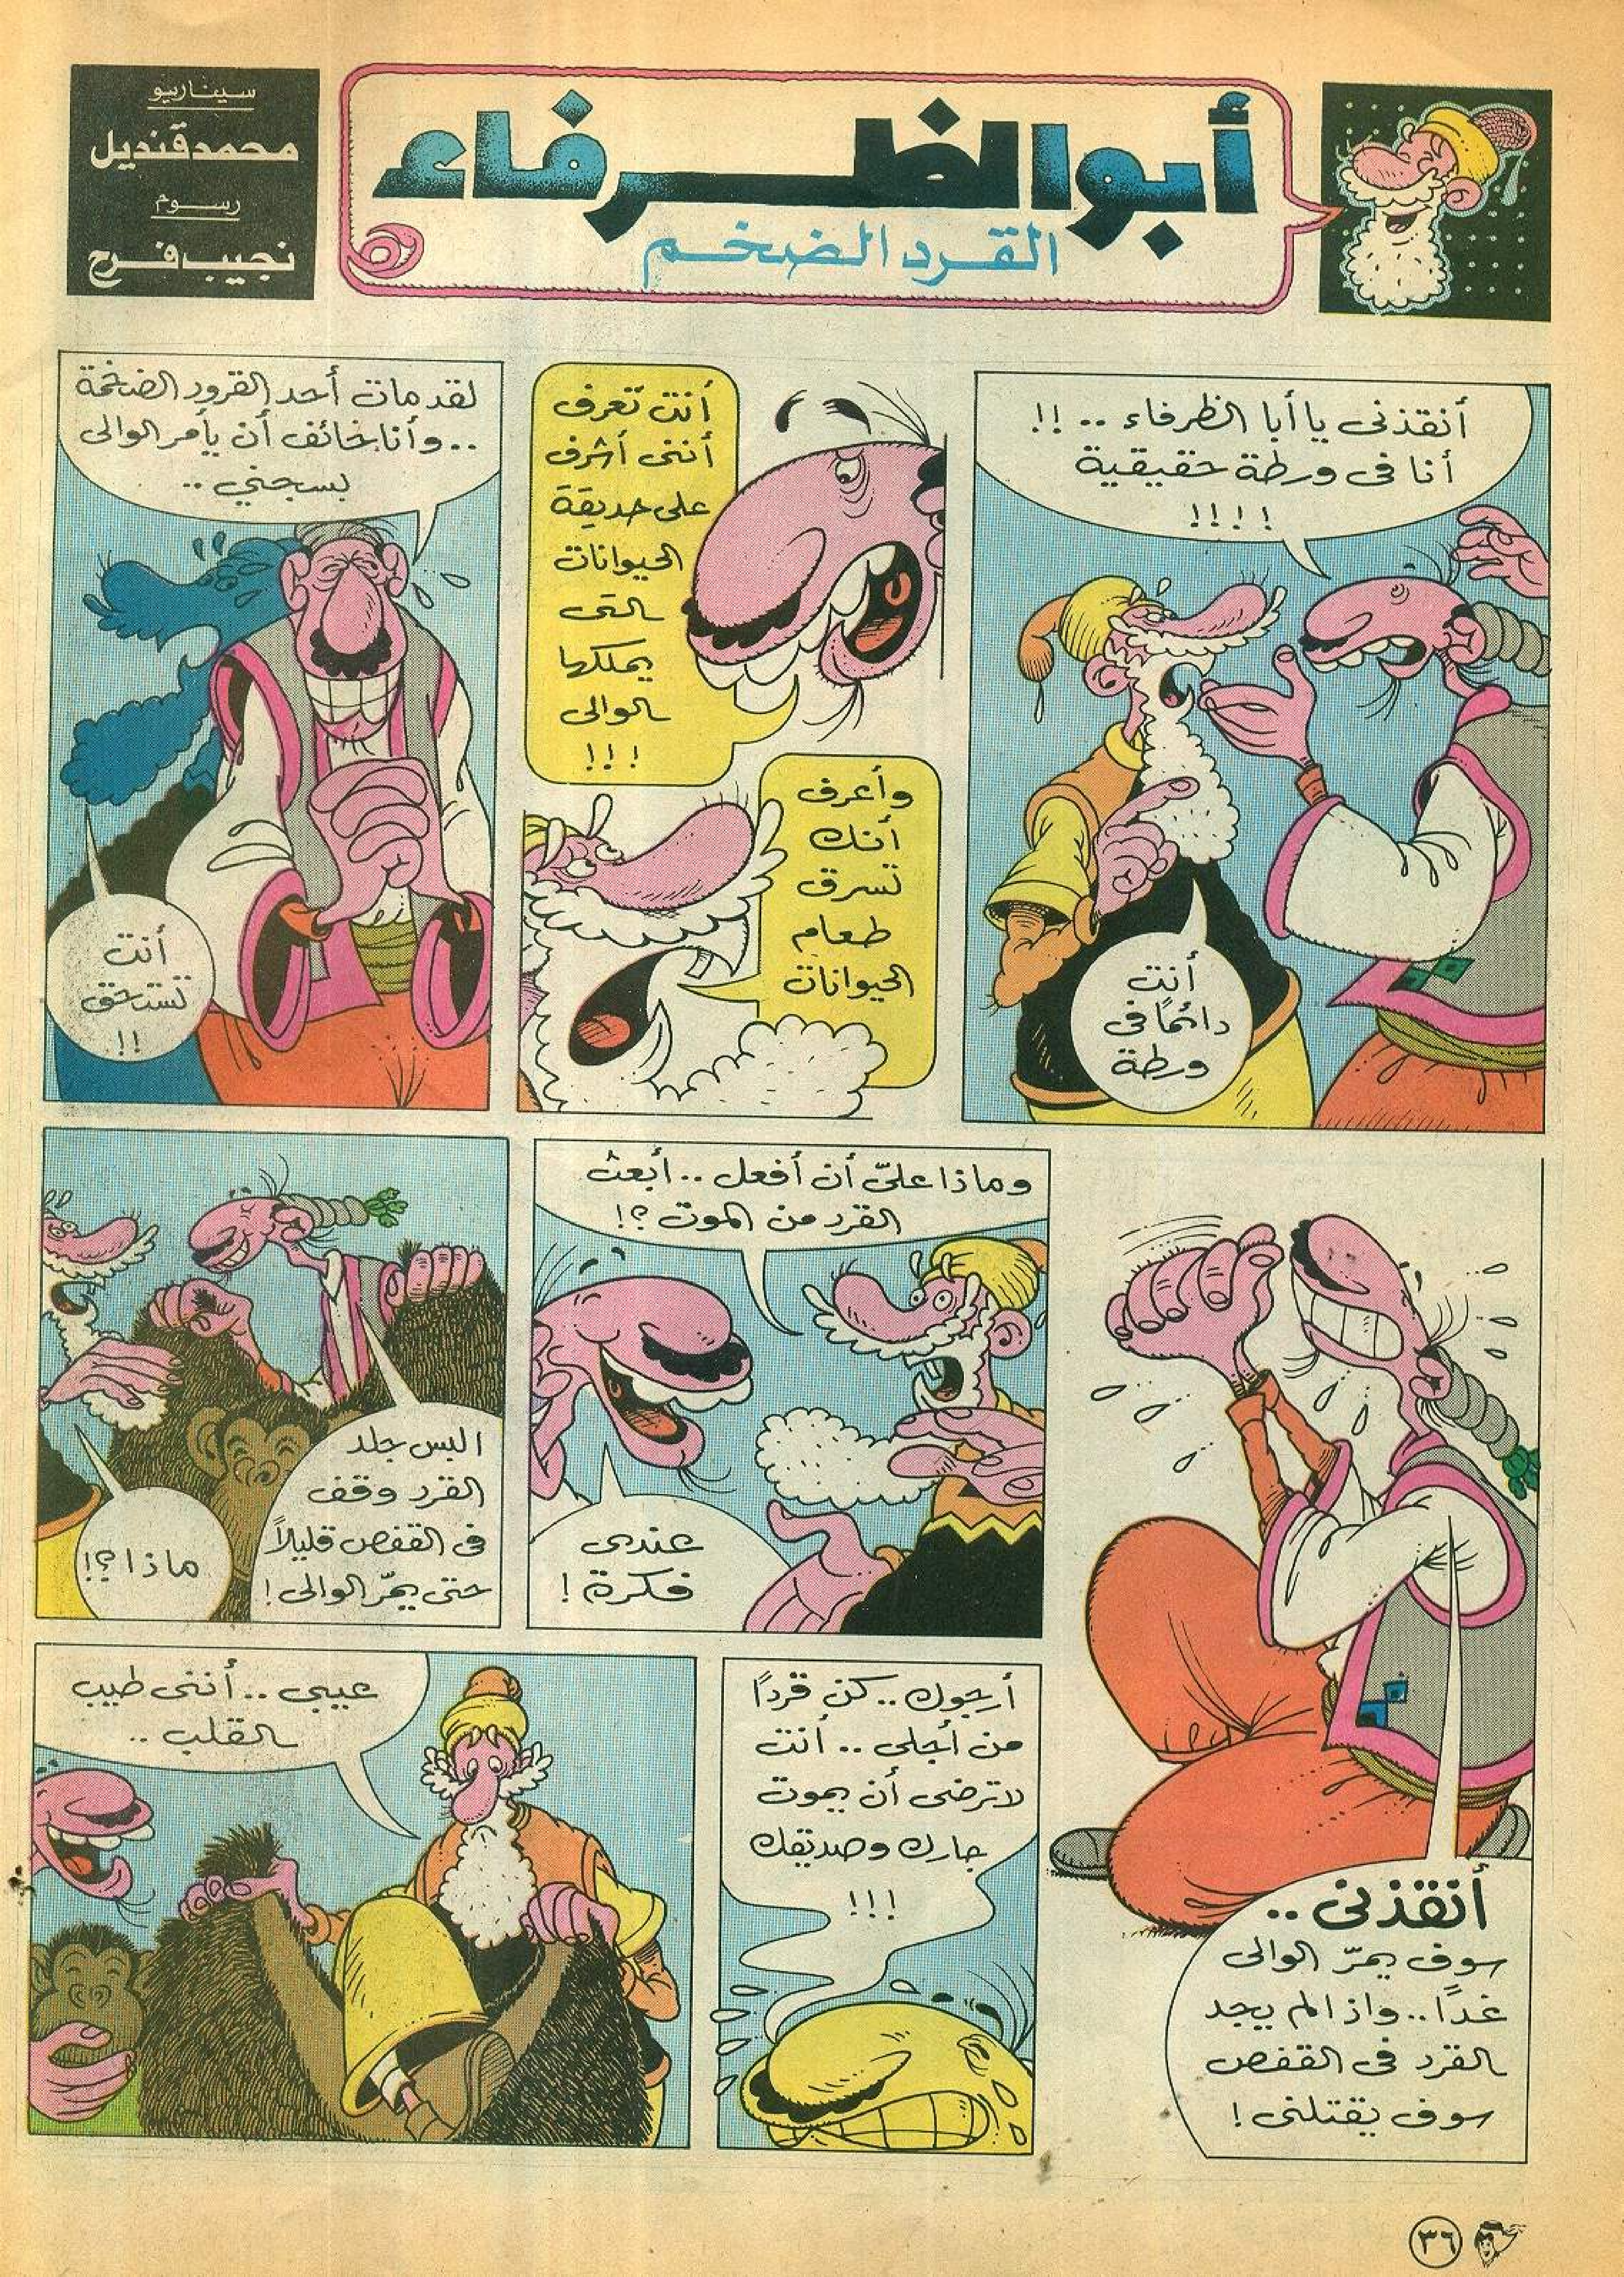 أبو الظرفاء
القرد الضخم
سيناريو
محمد قنديل
رسوم
نجيب فرح
أنقذنى يا أبا الظرفاء .. !!
أنا فى ورطة حقيقية
!!!!
أنت
دائمًا فى
ورطة
أنت تعرف
أننى أشرف
على حديقة
الحيوانات
التى
يملكها
الوالى
!!!
وأعرف
أنك
تسرق
طعام
الحيوانات
لقد مات أحد القرود الضخمة
.. وأنا خائف أن يأمر الوالى
بسجني ..
أنت
تستحق
!!
أنقذنى ..
سوف يمرّ الوالى
غدًا .. واذا لم يجد
القرد فى القفص
سوف يقتلنى !
وماذا علىّ أن أفعل .. أبعث
القرد من الموت ؟!
عندى
فكرة !
البس جلد
القرد وقف
فى القفص قليلاً
حتى يمرّ الوالى !
ماذا ؟!
أرجوك .. كن قردًا
من أجلى .. أنت
لا ترضى أن يموت
جارك وصديقك
!!!
عيبى .. أننى طيب
القلب ..
٣٦